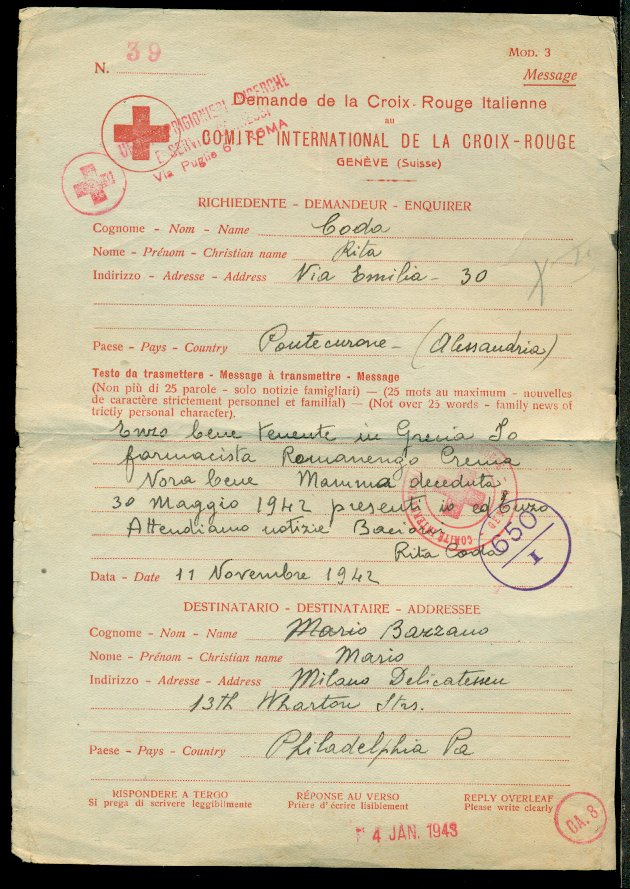 39
N.
MOD. 3
Message
Demande de la Croix-Rouge Italienne
au
COMITÉ INTERNATIONAL DE LA CROIX-ROUGE
GENÈVE (Suisse)
Via Puglie 6 ROMA
RICHIEDENTE - DEMANDEUR - ENQUIRER
Cognome - Nom - Name Coda
Nome - Prénom - Christian name Rita
Indirizzo - Adresse - Address Via Emilia - 30
Paese - Pays - Country Pontecurone - (Alessandria)
Testo da trasmettere - Message à transmettre - Message
(Non più di 25 parole - solo notizie famigliari) — (25 mots au maximum - nouvelles
de caractère strictement personnel et familial) — (Not over 25 words - family news of
trictly personal character).
Enzo bene tenente in Grecia Io
farmacista Romanengo Crema
Nora bene Mamma deceduta
30 Maggio 1942 presenti io ed Enzo
Attendiamo notizie
Rita Coda
650
I
Data - Date 11 Novembre 1942
DESTINATARIO - DESTINATAIRE - ADDRESSEE
Cognome - Nom - Name Mario Bazzano
Nome - Prénom - Christian name Mario
Indirizzo - Adresse - Address Milano Delicatessen
13th Wharton Strs.
Paese - Pays - Country Philadelphia Pa
RISPONDERE A TERGO
Si prega di scrivere leggibilmente
RÉPONSE AU VERSO
Prière d'écrire lisiblement
REPLY OVERLEAF
Please write clearly
4 JAN. 1943
CA. 8